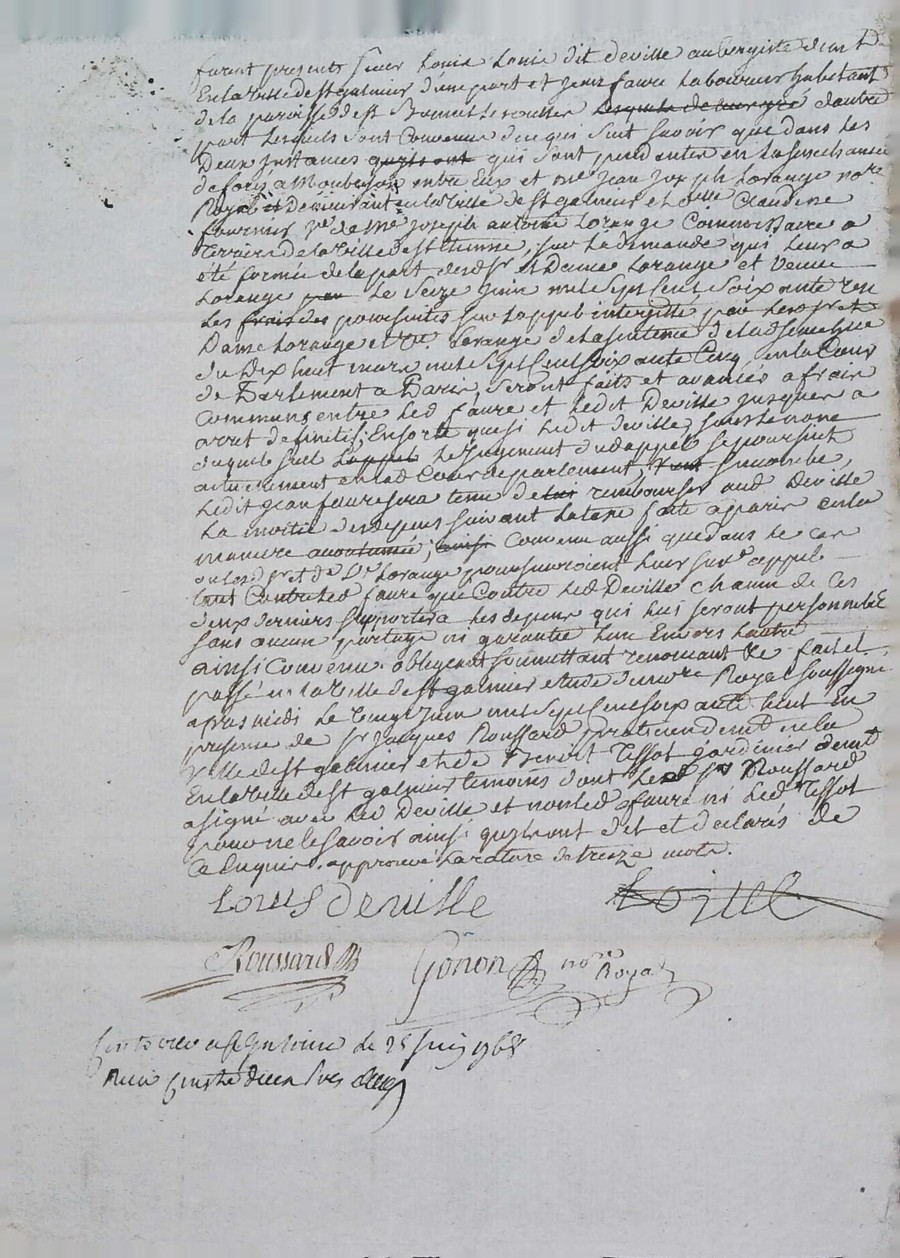 furent presents sieur Louis Louis dit deville aubergiste demt
En la ville de st galmier d'une part et jean faure Laboureur habitant
de la paroisse de st Bonnet Les oulles d'autre
part Lesquels sont Convenus de ce qui suit savoir que dans Les
Deux instances qui sont pendantes en la senechaussée
de forès a Montbrison entre Eux et me jean joseph Lorange nore
Royal et Demeurant en la ville de st galmier et delle Claudine
fournier ve de me joseph antoine Lorange Commissaire a
Terriers de la ville de st Etienne, sur La demande qui Leur a
été formée de la part desd sr et Dame Lorange et veuve
Lorange Le seize juin mil sept Cent soixante
Les frais des poursuites sur Lappel interjetté par Lesd sr et
Dame Lorange et ve Lorange de la sentence de lad senechaussée
du Dix huit mars mil sept Cent soixante Cinq en la Cour
de Parlement a Paris, seront faits et avancés a frais
Communs entre Led faure et Ledit Deville jusques a
arret definitif; En sorte que si Ledit deville, sous Le nom
duquel seul Le jugement dud appel se poursuit
actuellement en lad Cour de parlement, succombe,
Ledit jean faure sera tenu de rembourser aud Deville
La moitié des depens suivant La taxe faite a paris en la
maniere accoutumée; Convenu aussi que dans le cas
ou Lesd sr et de ve Lorange poursuivroient Leur sur appel
tant Contre Led faure que Contre Led Deville chacun de Ces
deux derniers supportera Les depens qui Lui seront personnels
sans aucun partage ni garantie L'un Envers Lautre
ainsi Convenu. obligeant soumettant renonceant &c fait et
passé en la ville de st galmier etude du nore Royal soussigné
apres midi Le vingt juin mil sept Cent soixante huit En
presence de sr jacques Roussard praticien demt en la
ville de st galmier et de Benoit Tessot jardinier demt
En la ville de st galmier temoins dont Led sr Roussard
a signé avec Led Deville et non Led faure ni Led Tessot
pour ne le savoir ainsi qu'ils ont dit et declarés de
Ce Enquis. approuvé La rature de treize mots.
Louis deville
Roussard Gonon nore Royal
Controllé a st galmier le 25 juin 1768